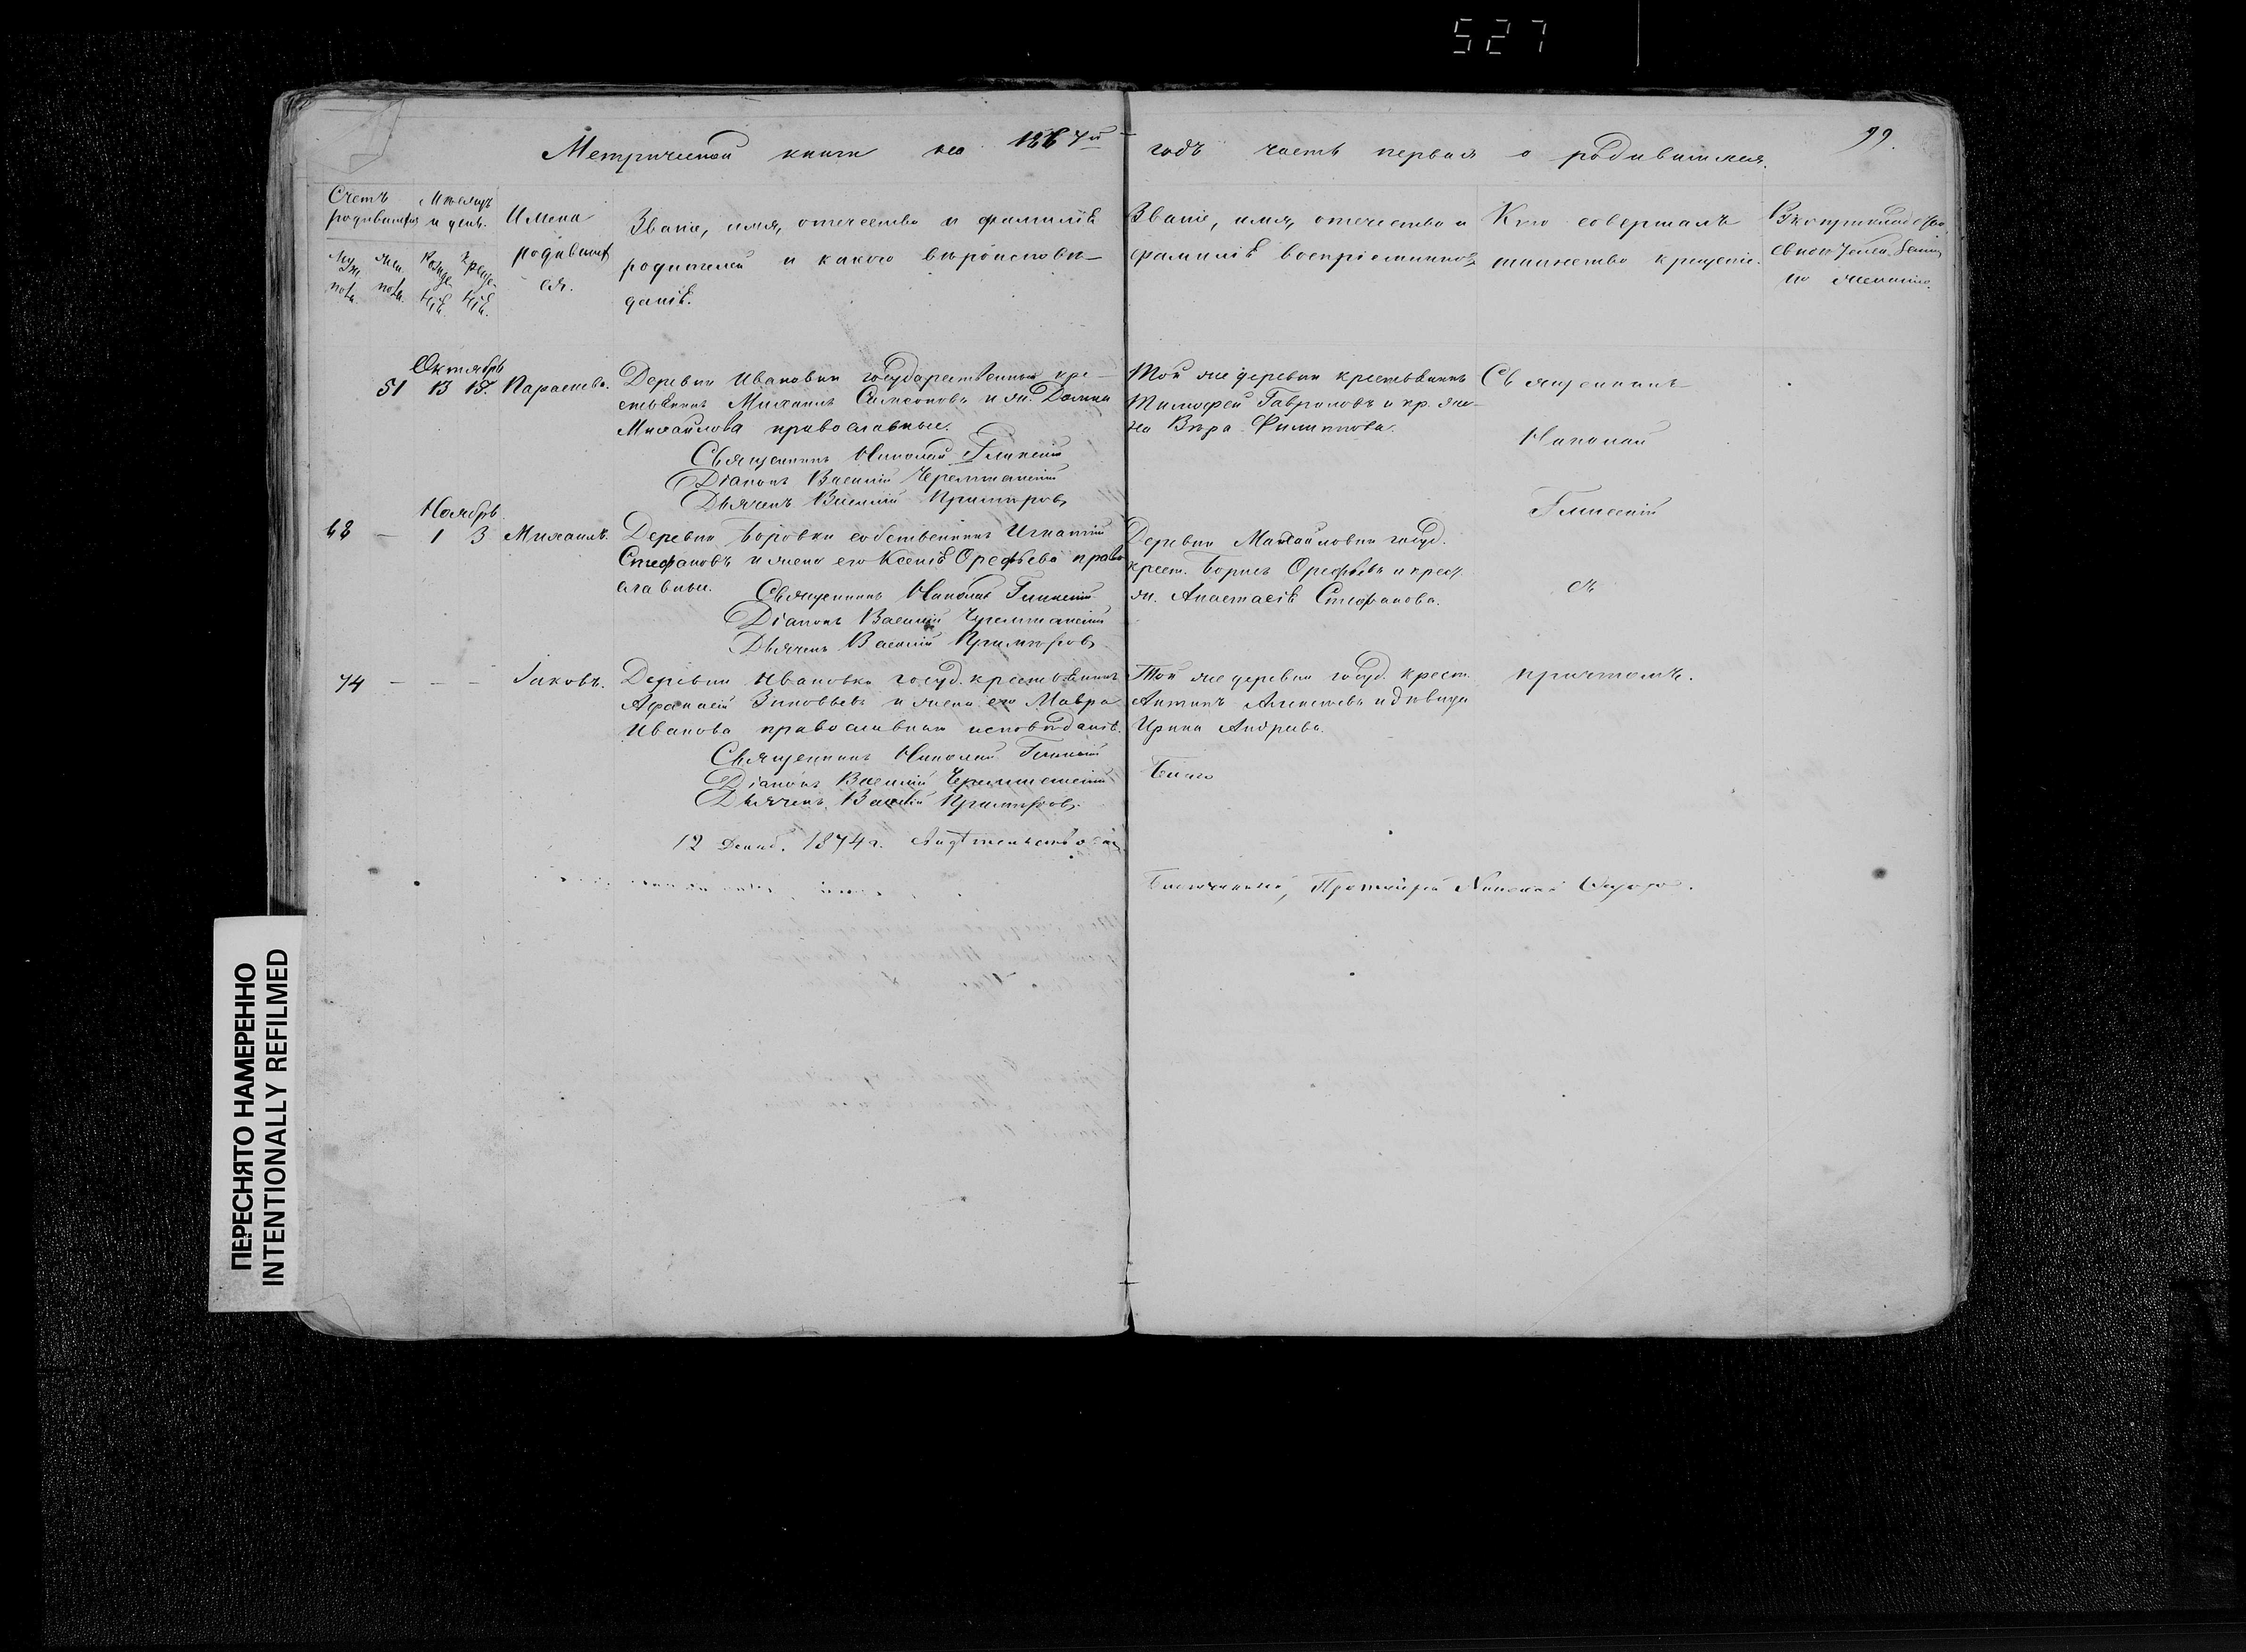 527
99.
Метрической книги на 1867й годъ часть первая о родившихся.
Счетъ родившихся
Муж. пола. Жен. пола.
Мѣсяцъ и день.
Рожденія. Крещенія.
Имена
родивших
ся.
Званіе, имя, отечество и фамилія
родителей и какого вѣроисповѣ-
данія.
Званіе, имя, отечество и
фамилія воспріемниковъ
Кто совершалъ
таинство крещенія.
по желанію.
Октябрь
51 13 15. Параскева.
Деревни Ивановки государственный кре-
стьянинъ Михаилъ Симеоновъ и ж. Домна
Михайлова православные.
Священникъ Николай Глинскій
Діаконъ Василій Черемшанскій
Дьячекъ Василій
Той же деревни крестьянинъ
Тимофей Гавриловъ и кр. же-
на Вѣра Филиппова.
Священникъ
Николай
Глинскій
Ноябрь
68 — 1 3 Михаилъ.
Деревни Боровки собственникъ Игнатій
Стефановъ и жена его Ксенія Орефьева право
славные. Священникъ Николай Глинскій
Діаконъ Василій Черемшанскій
Дьячекъ Василій
Деревни Михайловки госуд.
крест. Борисъ Орефьевъ и крест.
ж. Анастасія Стефанова.
съ
74 — — — Іаковъ.
Деревни Ивановки госуд. крестьянинъ
Афанасій Зиновьевъ и жена его Мавра
Иванова православнаго исповѣданія.
Священникъ Николай Глинскій
Діаконъ Василій Черемшанскій
Дьячекъ Василій
Той же деревни госуд. крест.
Антипъ Алексѣевъ и дѣвица
Ирина Андреева.
причтомъ.
12 Декаб. 1874 г.
Благочинный, Протоіерей
ПЕРЕСНЯТО НАМЕРЕННО
INTENTIONALLY REFILMED